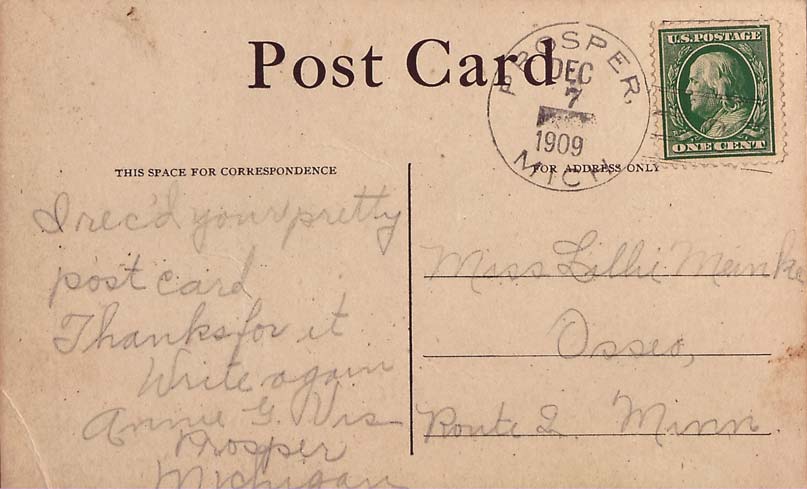 Post Card
PROSPER,
DEC
7
1909
MICH.
U.S. POSTAGE
ONE CENT
THIS SPACE FOR CORRESPONDENCE
FOR ADDRESS ONLY
I rec'd your pretty
post card
Thanks for it
Write again
Annie G. Vis
Prosper
Michigan
Miss Lillie Meinke
Osseo,
Route 2. Minn.